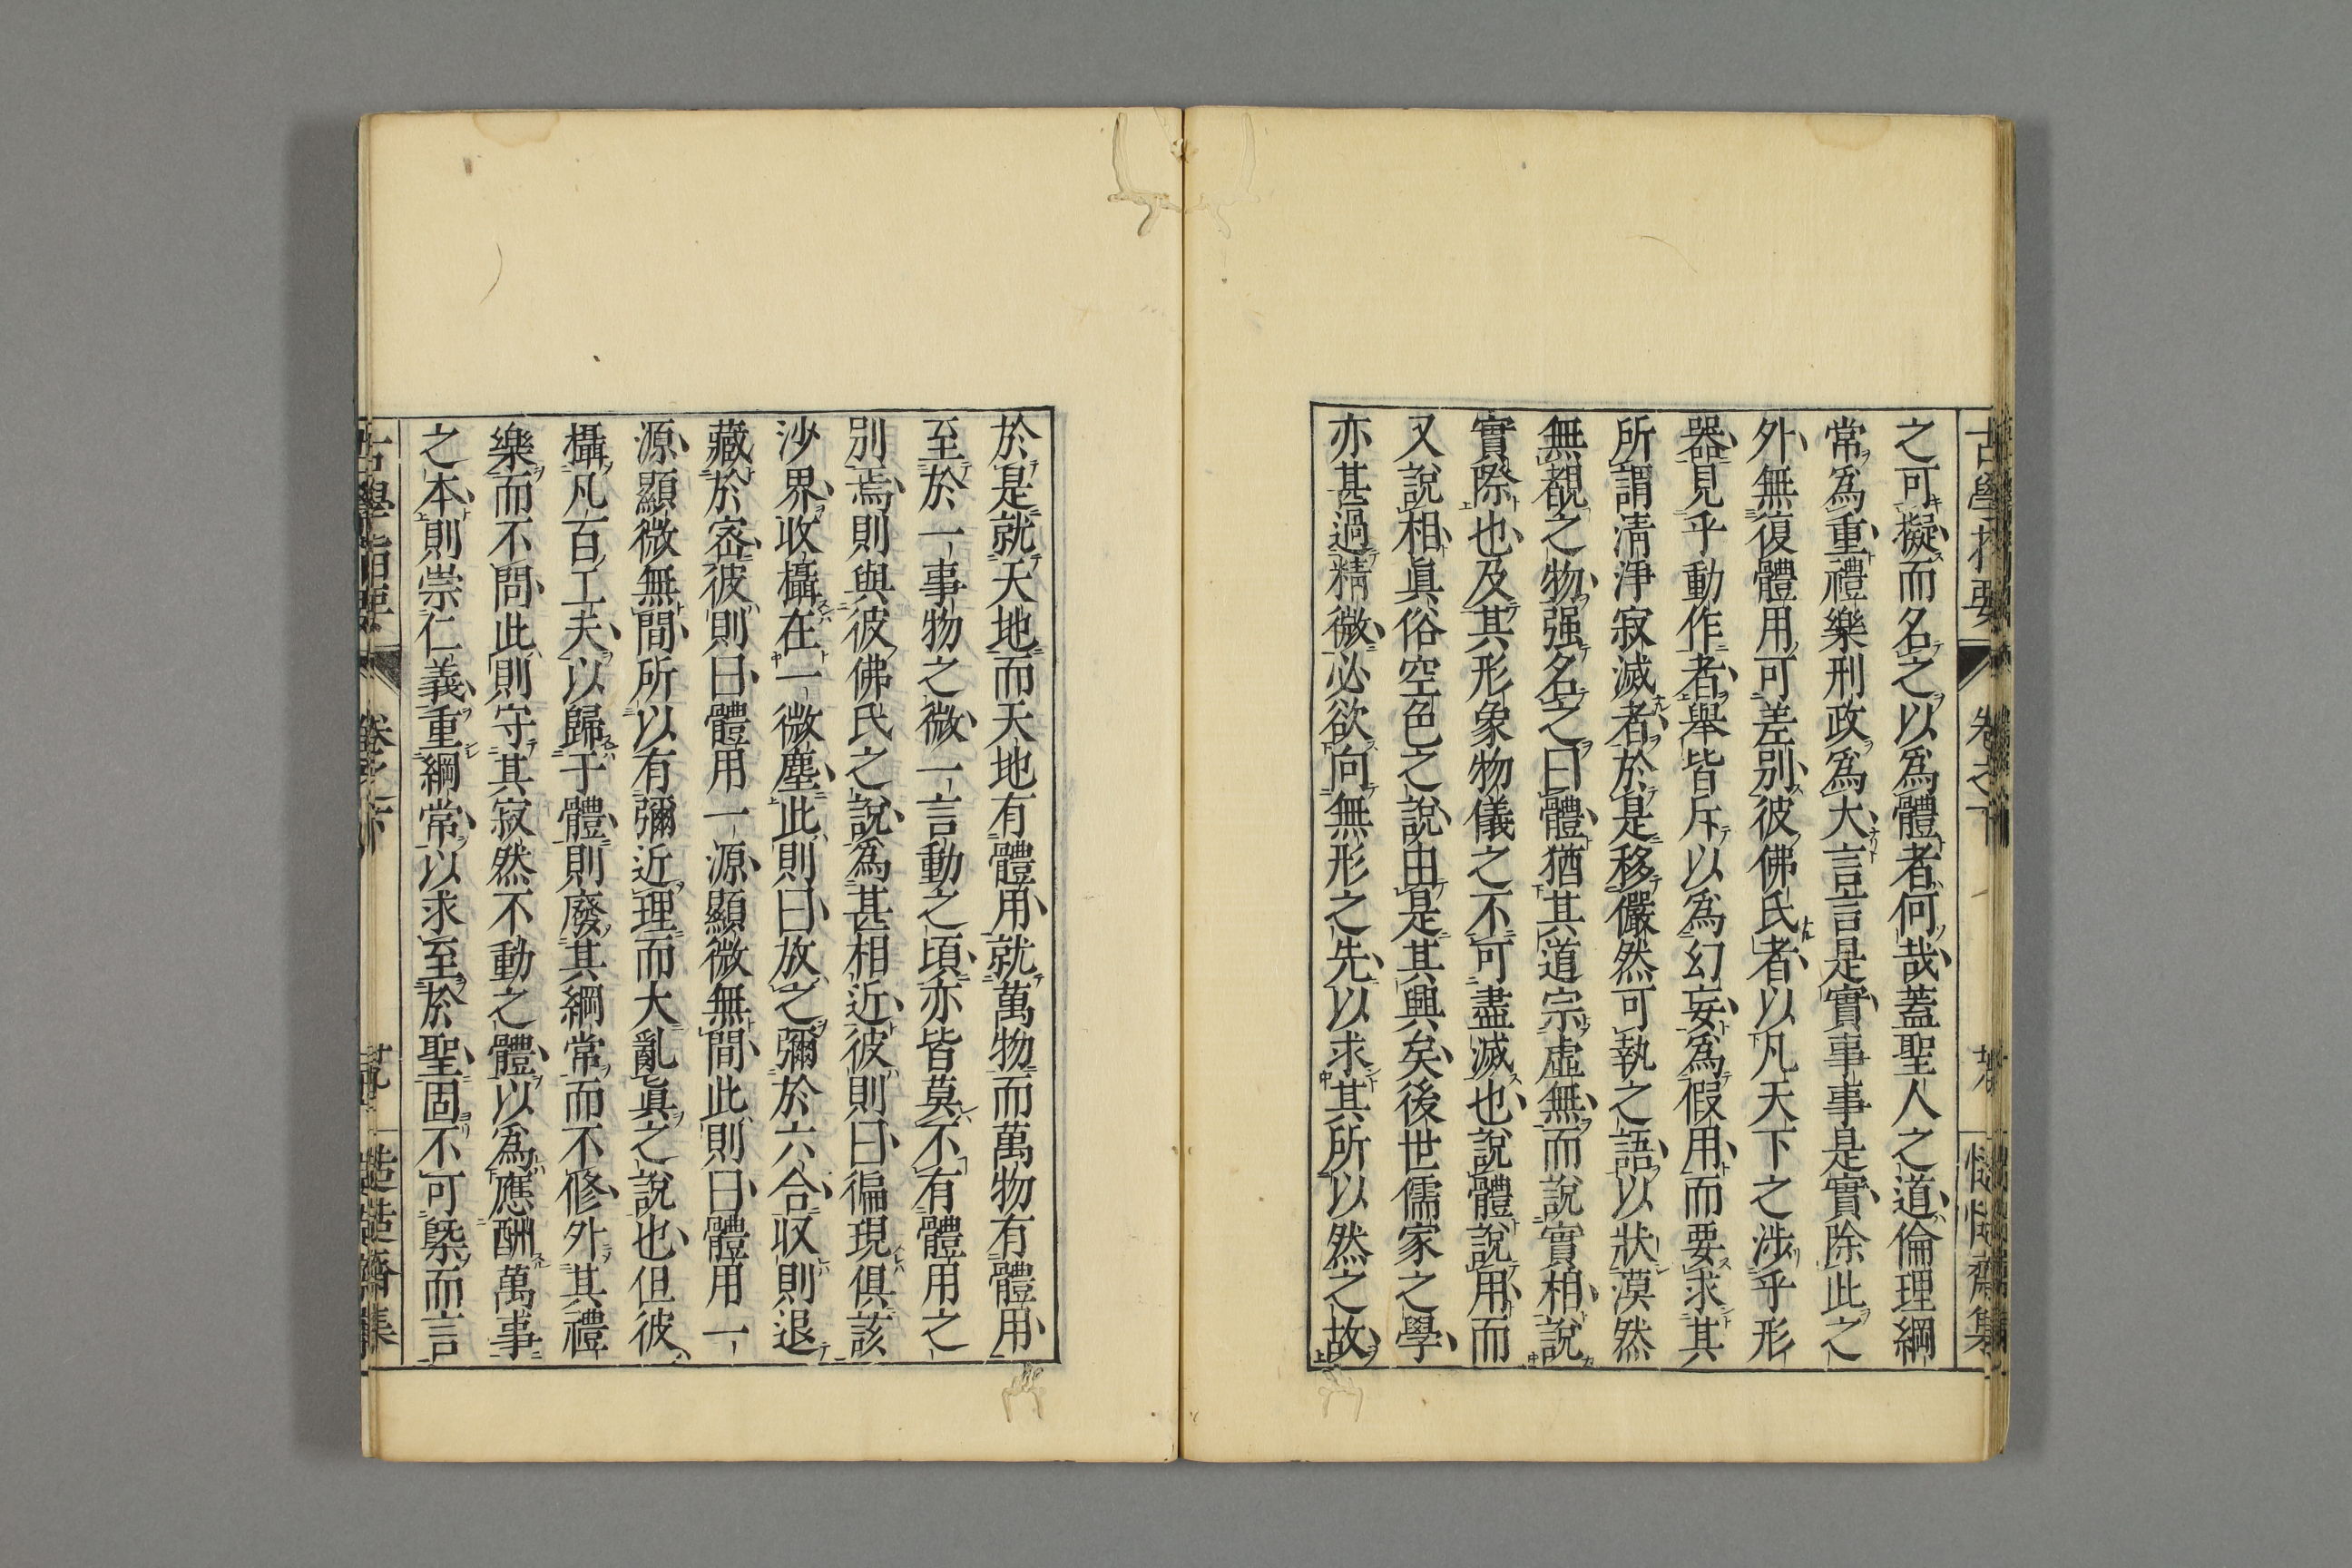 之可擬而名之以爲體者何哉蓋聖人之道倫理綱
常爲重禮樂刑政爲大言言是實事事是實除此之
外無復體用可差別彼佛氏者以凡天下之涉乎形
器見乎動作者舉皆斥以爲幻妄爲假用而要求其
所謂淸淨寂滅者於是移儼然可執之語以狀漠然
無覩之物强名之曰體猶其道宗虛無而說實相說
實際也及其形象物儀之不可盡滅也說體說用而
又說相眞俗空色之說由是其興矣後世儒家之學
亦甚過精微必欲向無形之先以求其所以然之故
於是就天地而天地有體用就萬物而萬物有體用
至於一事物之微一言動之頃亦皆莫不有體用之
別焉則與彼佛氏之說爲甚相近彼則曰徧現俱該
沙界收攝在一微塵此則曰放之彌於六合収則退
藏於密彼則曰體用一源顯微無間此則曰體用一
源顯微無間所以有彌近理而大亂眞之說也但彼
攝凡百工夫以歸于體則廢其綱常而不修外其禮
樂而不問此則守其寂然不動之體以爲應酬萬事
之本則崇仁義重綱常以求至於聖固不可槩而言
古學指要
卷之下